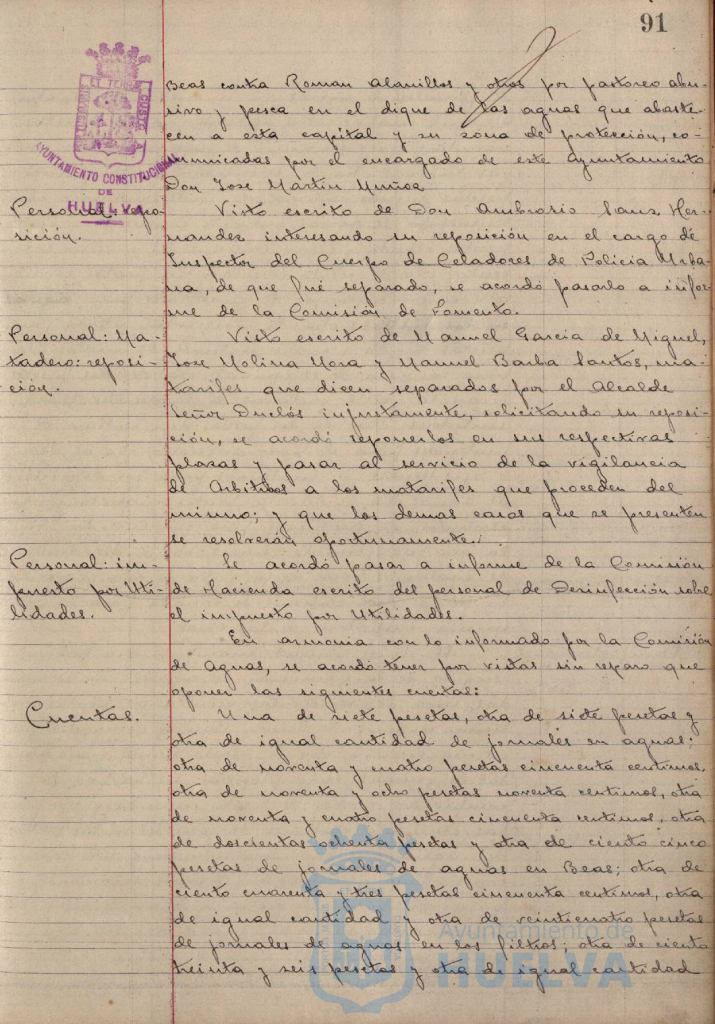 91
ET TERR
CUSTO
AYUNTAMIENTO CONSTITUCIONAL
DE
HUELVA
Beas contra Roman Alamillos y otros por pastoreo abu-
sivo y pesca en el dique de las aguas que abaste-
cen a esta capital y su zona de protección, co-
municadas por el encargado de este Ayuntamiento
Don Jose Martin Muñoz
Personal: repo-
sición.
Visto escrito de Don Ambrosio Sanz Her-
nandez interesando su reposición en el cargo de
Inspector del Cuerpo de Celadores de Policia Urba-
na, de que fué separado, se acordó pasarlo a infor-
me de la Comisión de Fomento.
Personal: Ma-
tadero: reposi-
ción.
Visto escrito de Manuel Garcia de Miguel,
Jose Molina Mora y Manuel Barba Santos, ma-
tarifes que dicen separados por el Alcalde
Señor Duclós injustamente, solicitando su reposi-
ción, se acordó reponerlos en sus respectivas
plazas y pasar al servicio de la vigilancia
de Arbitrios a los matarifes que proceden del
mismo; y que los demas casos que se presenten
se resolverán oportunamente.
Personal: im-
puesto por Uti-
lidades.
Se acordó pasar a informe de la Comisión
de Hacienda escrito del personal de Desinfección sobre
el impuesto por Utilidades.
En armonia con lo informado por la Comisión
de Aguas, se acordó tener por vistas sin reparo que
oponer las siguientes cuentas:
Cuentas.
Una de siete pesetas, otra de siete pesetas y
otra de igual cantidad de jornales en aguas;
otra de noventa y cuatro pesetas cincuenta centimos,
otra de noventa y ocho pesetas noventa centimos, otra
de noventa y cuatro pesetas cincuenta centimos, otra
de doscientas ochenta pesetas y otra de ciento cinco
pesetas de jornales de aguas en Beas; otra de
ciento cuarenta y tres pesetas cincuenta centimos, otra
de igual cantidad y otra de veinticuatro pesetas
de jornales de aguas en los filtros; otra de ciento
treinta y seis pesetas y otra de igual cantidad
Ayuntamiento de
HUELVA